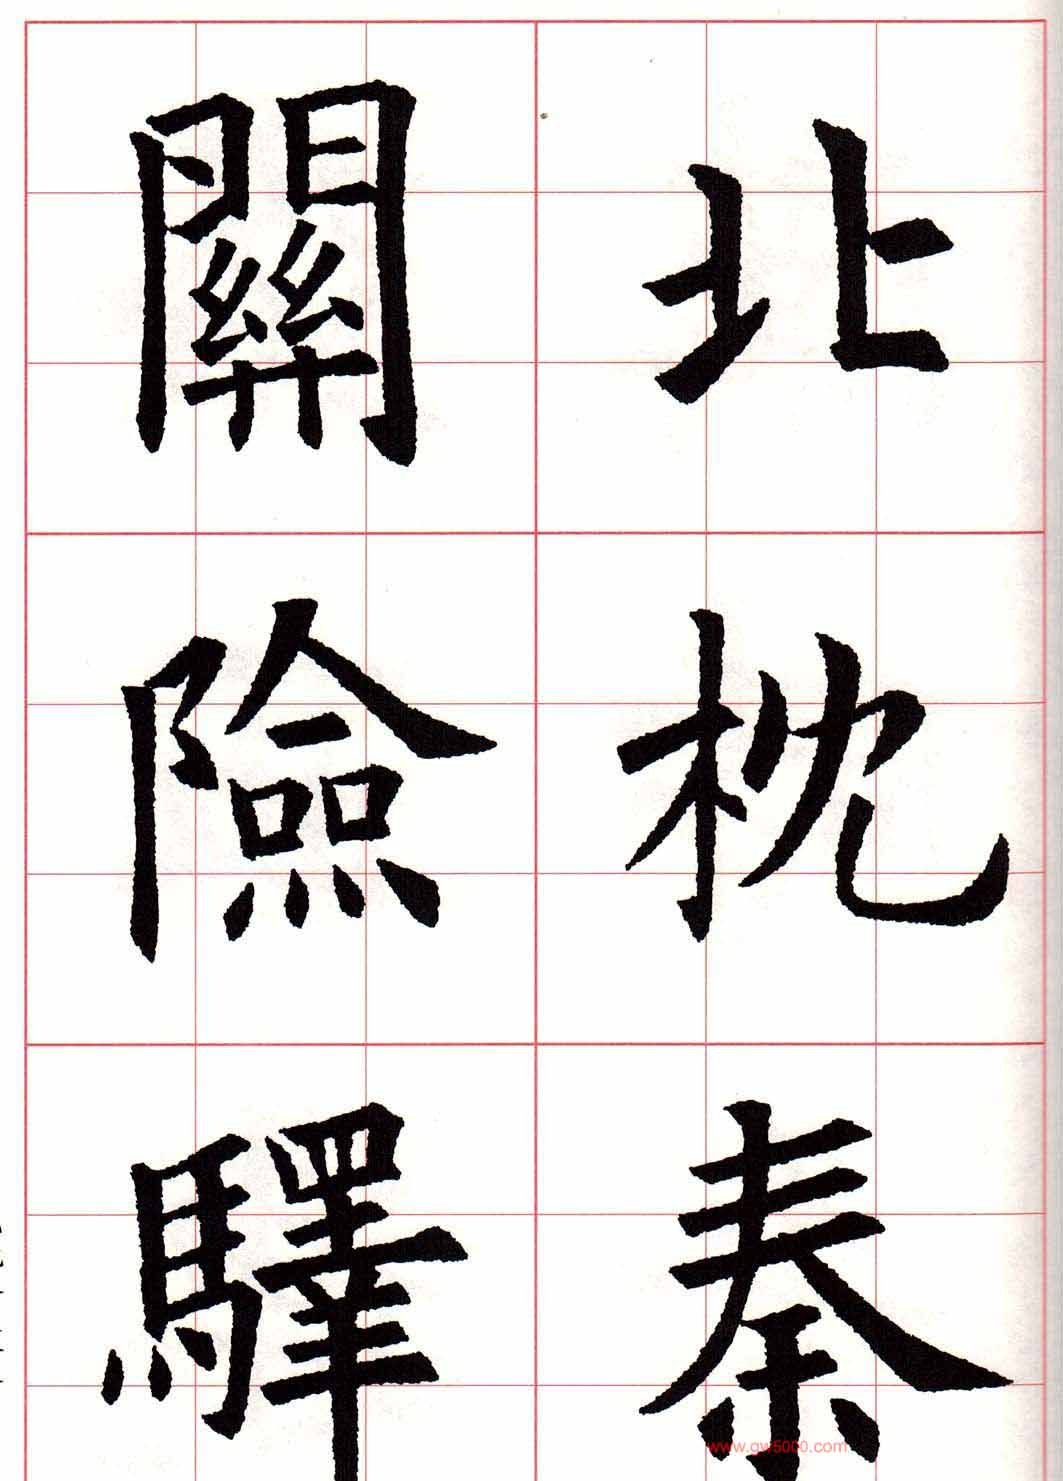 北枕秦
關險驛
www.gw5000.com